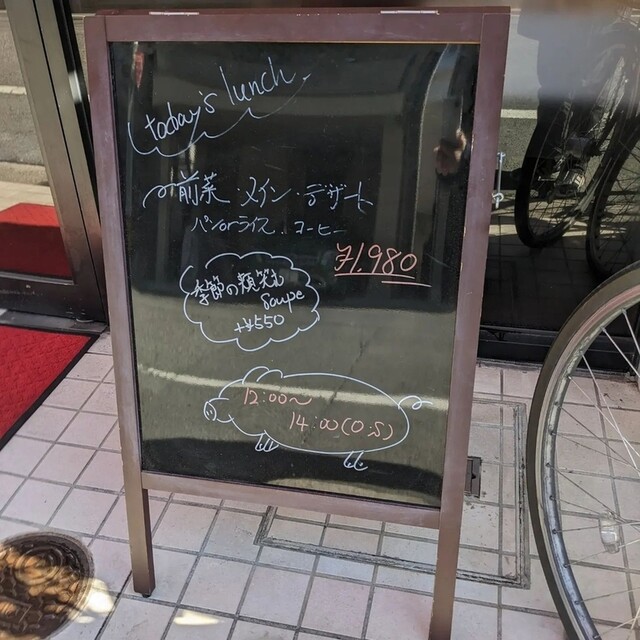 today's lunch.
前菜・メイン・デザート
パンorライス・コーヒー
¥1,980
季節の
Soupe
+¥550
12:00〜
14:00(O.S)